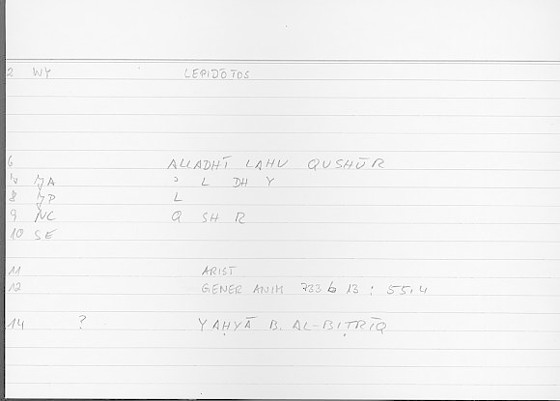 2 WY LEPIDŌTOS
6 ALLADHĪ LAHU QUSHŪR
JA ʾ L DH Y
8 JP L
9 NC Q SH R
10 SE
11 ARIST
12 GENER ANIM 733 b 13 : 55.4
14 ? YAḤYĀ B. AL-BIṬRĪQ